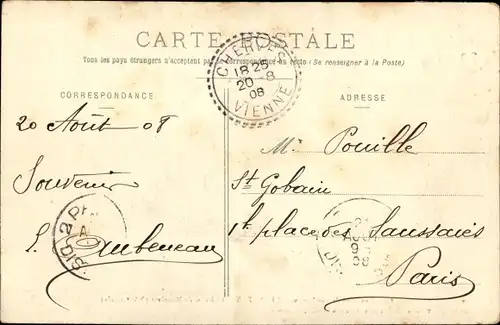 CARTE POSTALE
Tous les pays étrangers n'acceptent pas la correspondance au recto (Se renseigner à la Poste)
CHERVES
18 25
20 -8
08
VIENNE
CORRESPONDANCE
ADRESSE
20 Août 08
Souvenir
Mr Pouille
St Gobain
1 place des Saussaies
Paris